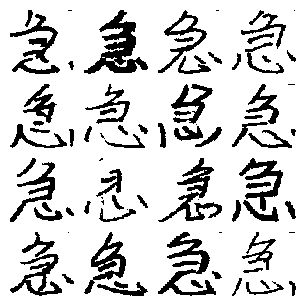 急急急急
急急急急
急急急急
急急急急